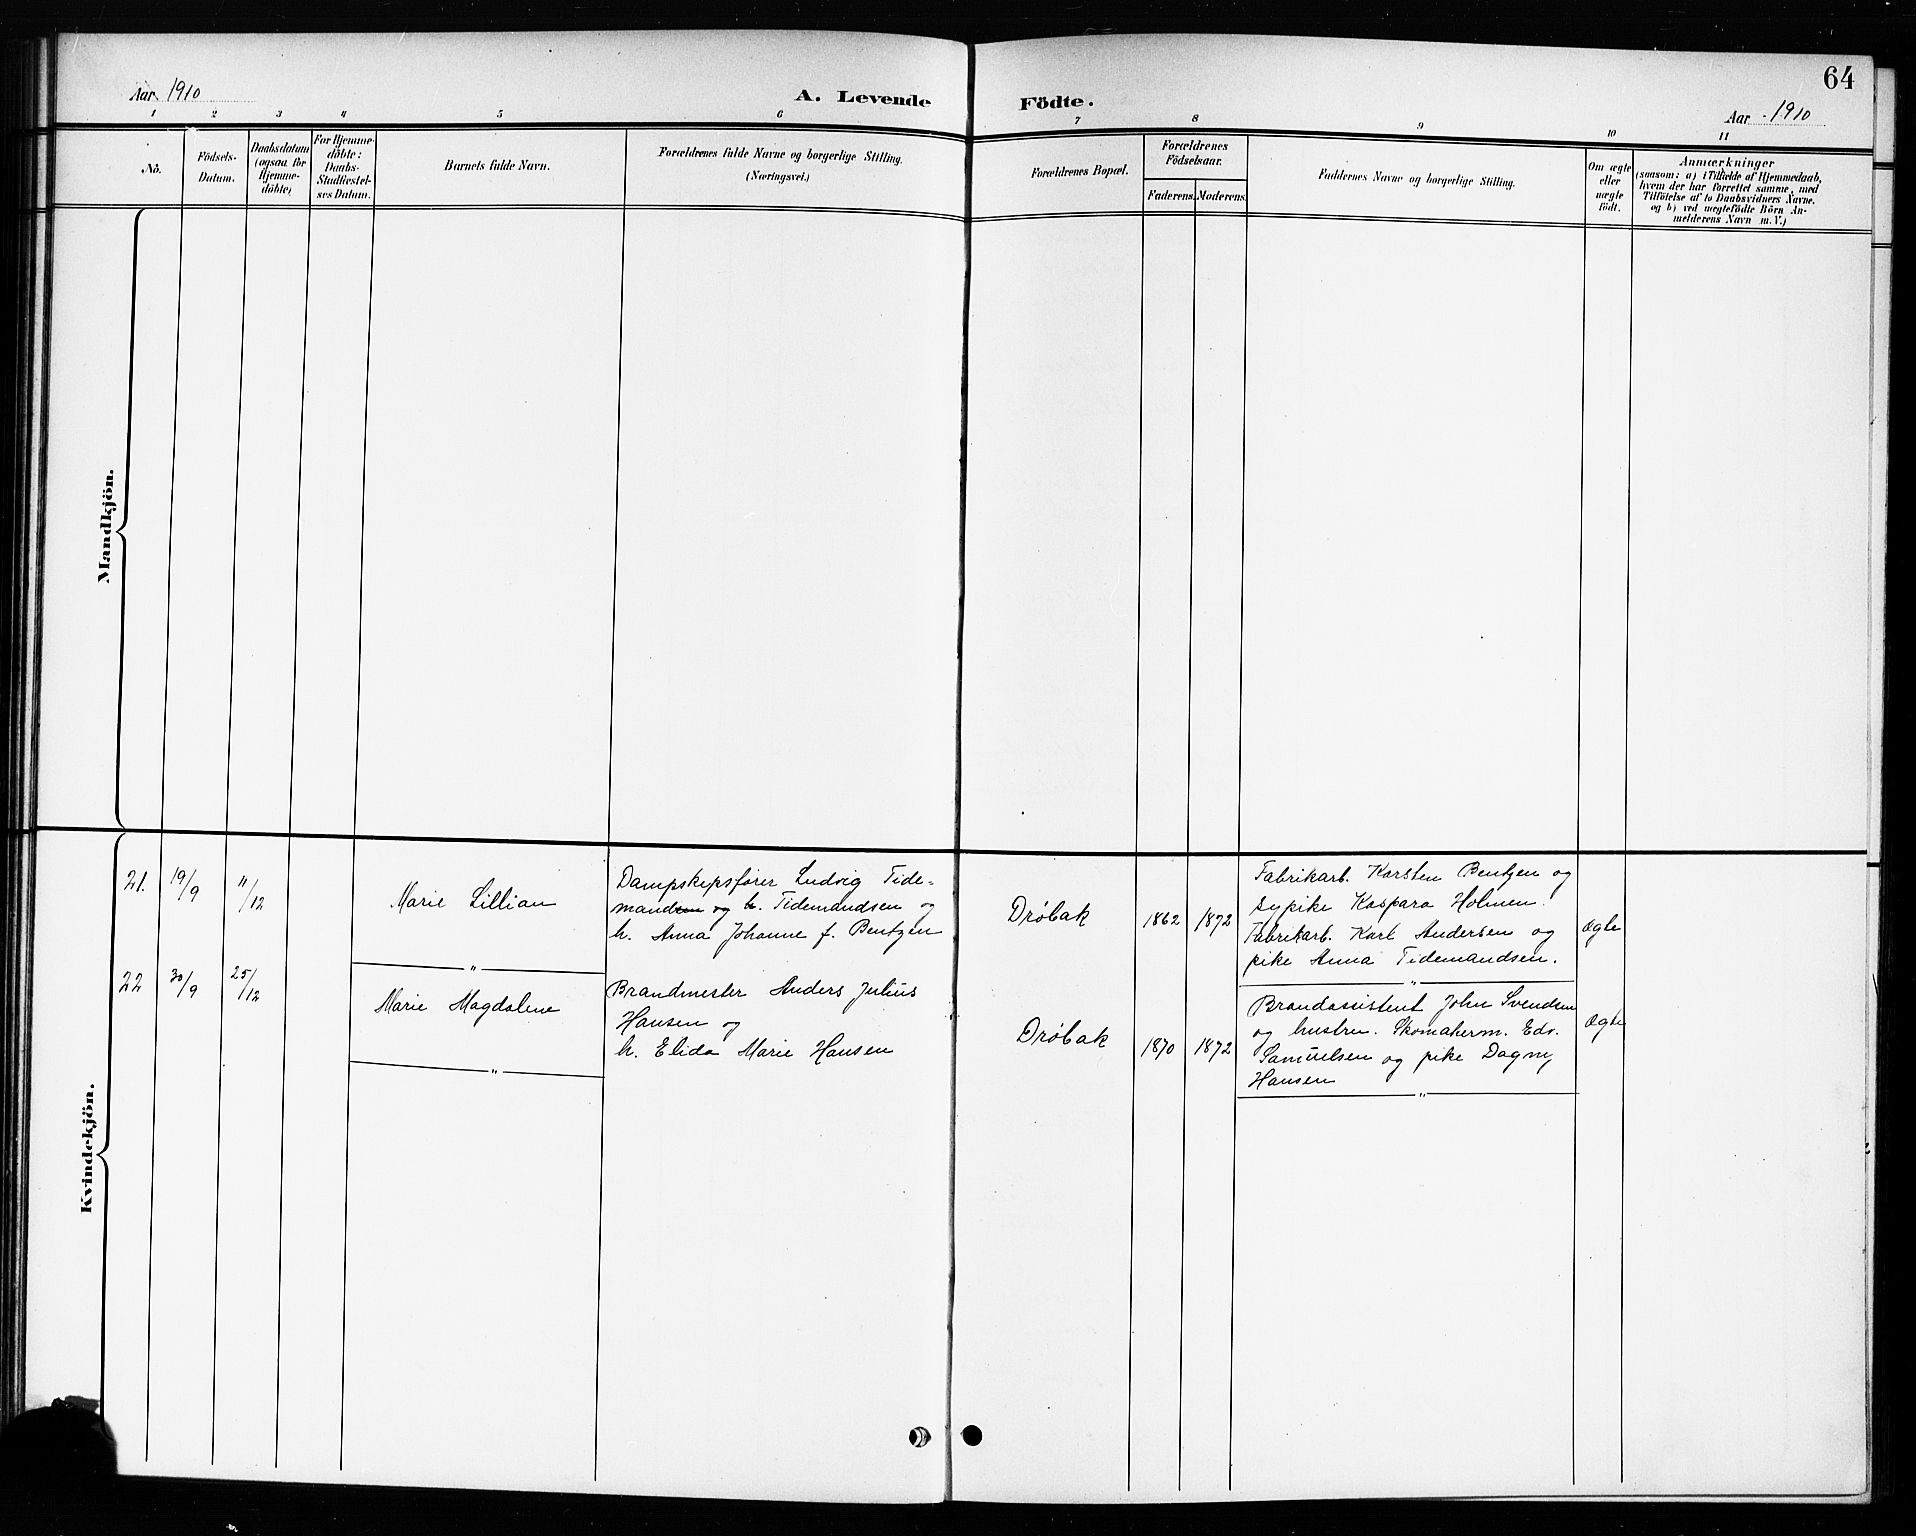 64
Aar 1910
A. Levende
Födte.
Aar 1910
1 2 3 4 5 6 7 8 9 10 11
No.
Födsels-
Datum.
Daabsdatum
(ogsaa for
Hjemme-
döbte)
For Hjemme-
döbte:
Daabs-
Stadfæstel-
ses Datum.
Barnets fulde Navn.
Forældrenes fulde Navne og borgerlige Stilling.
(Næringsvei.)
Forældrenes Bopæl.
Forældrenes
Födselsaar.
Faderens. Moderens.
Faddernes Navne og borgerlige Stilling.
Om ægte
eller
uægte
födt.
Anmærkninger
(saasom: a) i Tilfælde af Hjemmedaab,
hvem der har forrettet samme, med
Tilföielse af to Daabsvidners Navne.
og b) ved uægtefödte Börn An-
melderens Navn m. V.)
Mandkjön.
Kvindekjön.
21. 19/9 11/12
Marie Lillian
Dampskipsfører Ludvig Tide-
mandsen og h. Tidemandsen og
h. Anna Johanne f. Bentzen
Drøbak 1862 1872
Fabrikarb. Karsten Bentzen og
sypike Kaspara Holmen.
Fabrikarb. Karl Andersen og
pike Anna Tidemandsen.
Ægte
"
"
22 30/9 25/12
Marie Magdalene
Brandmester Anders Julius
Hansen og
h. Elida Marie Hansen
Drøbak 1870 1872
Brandassistent John Svendsen
og hustru. Skomakerm. Edv.
Samuelsen og pike Dagny
Hansen
Ægte
"
"